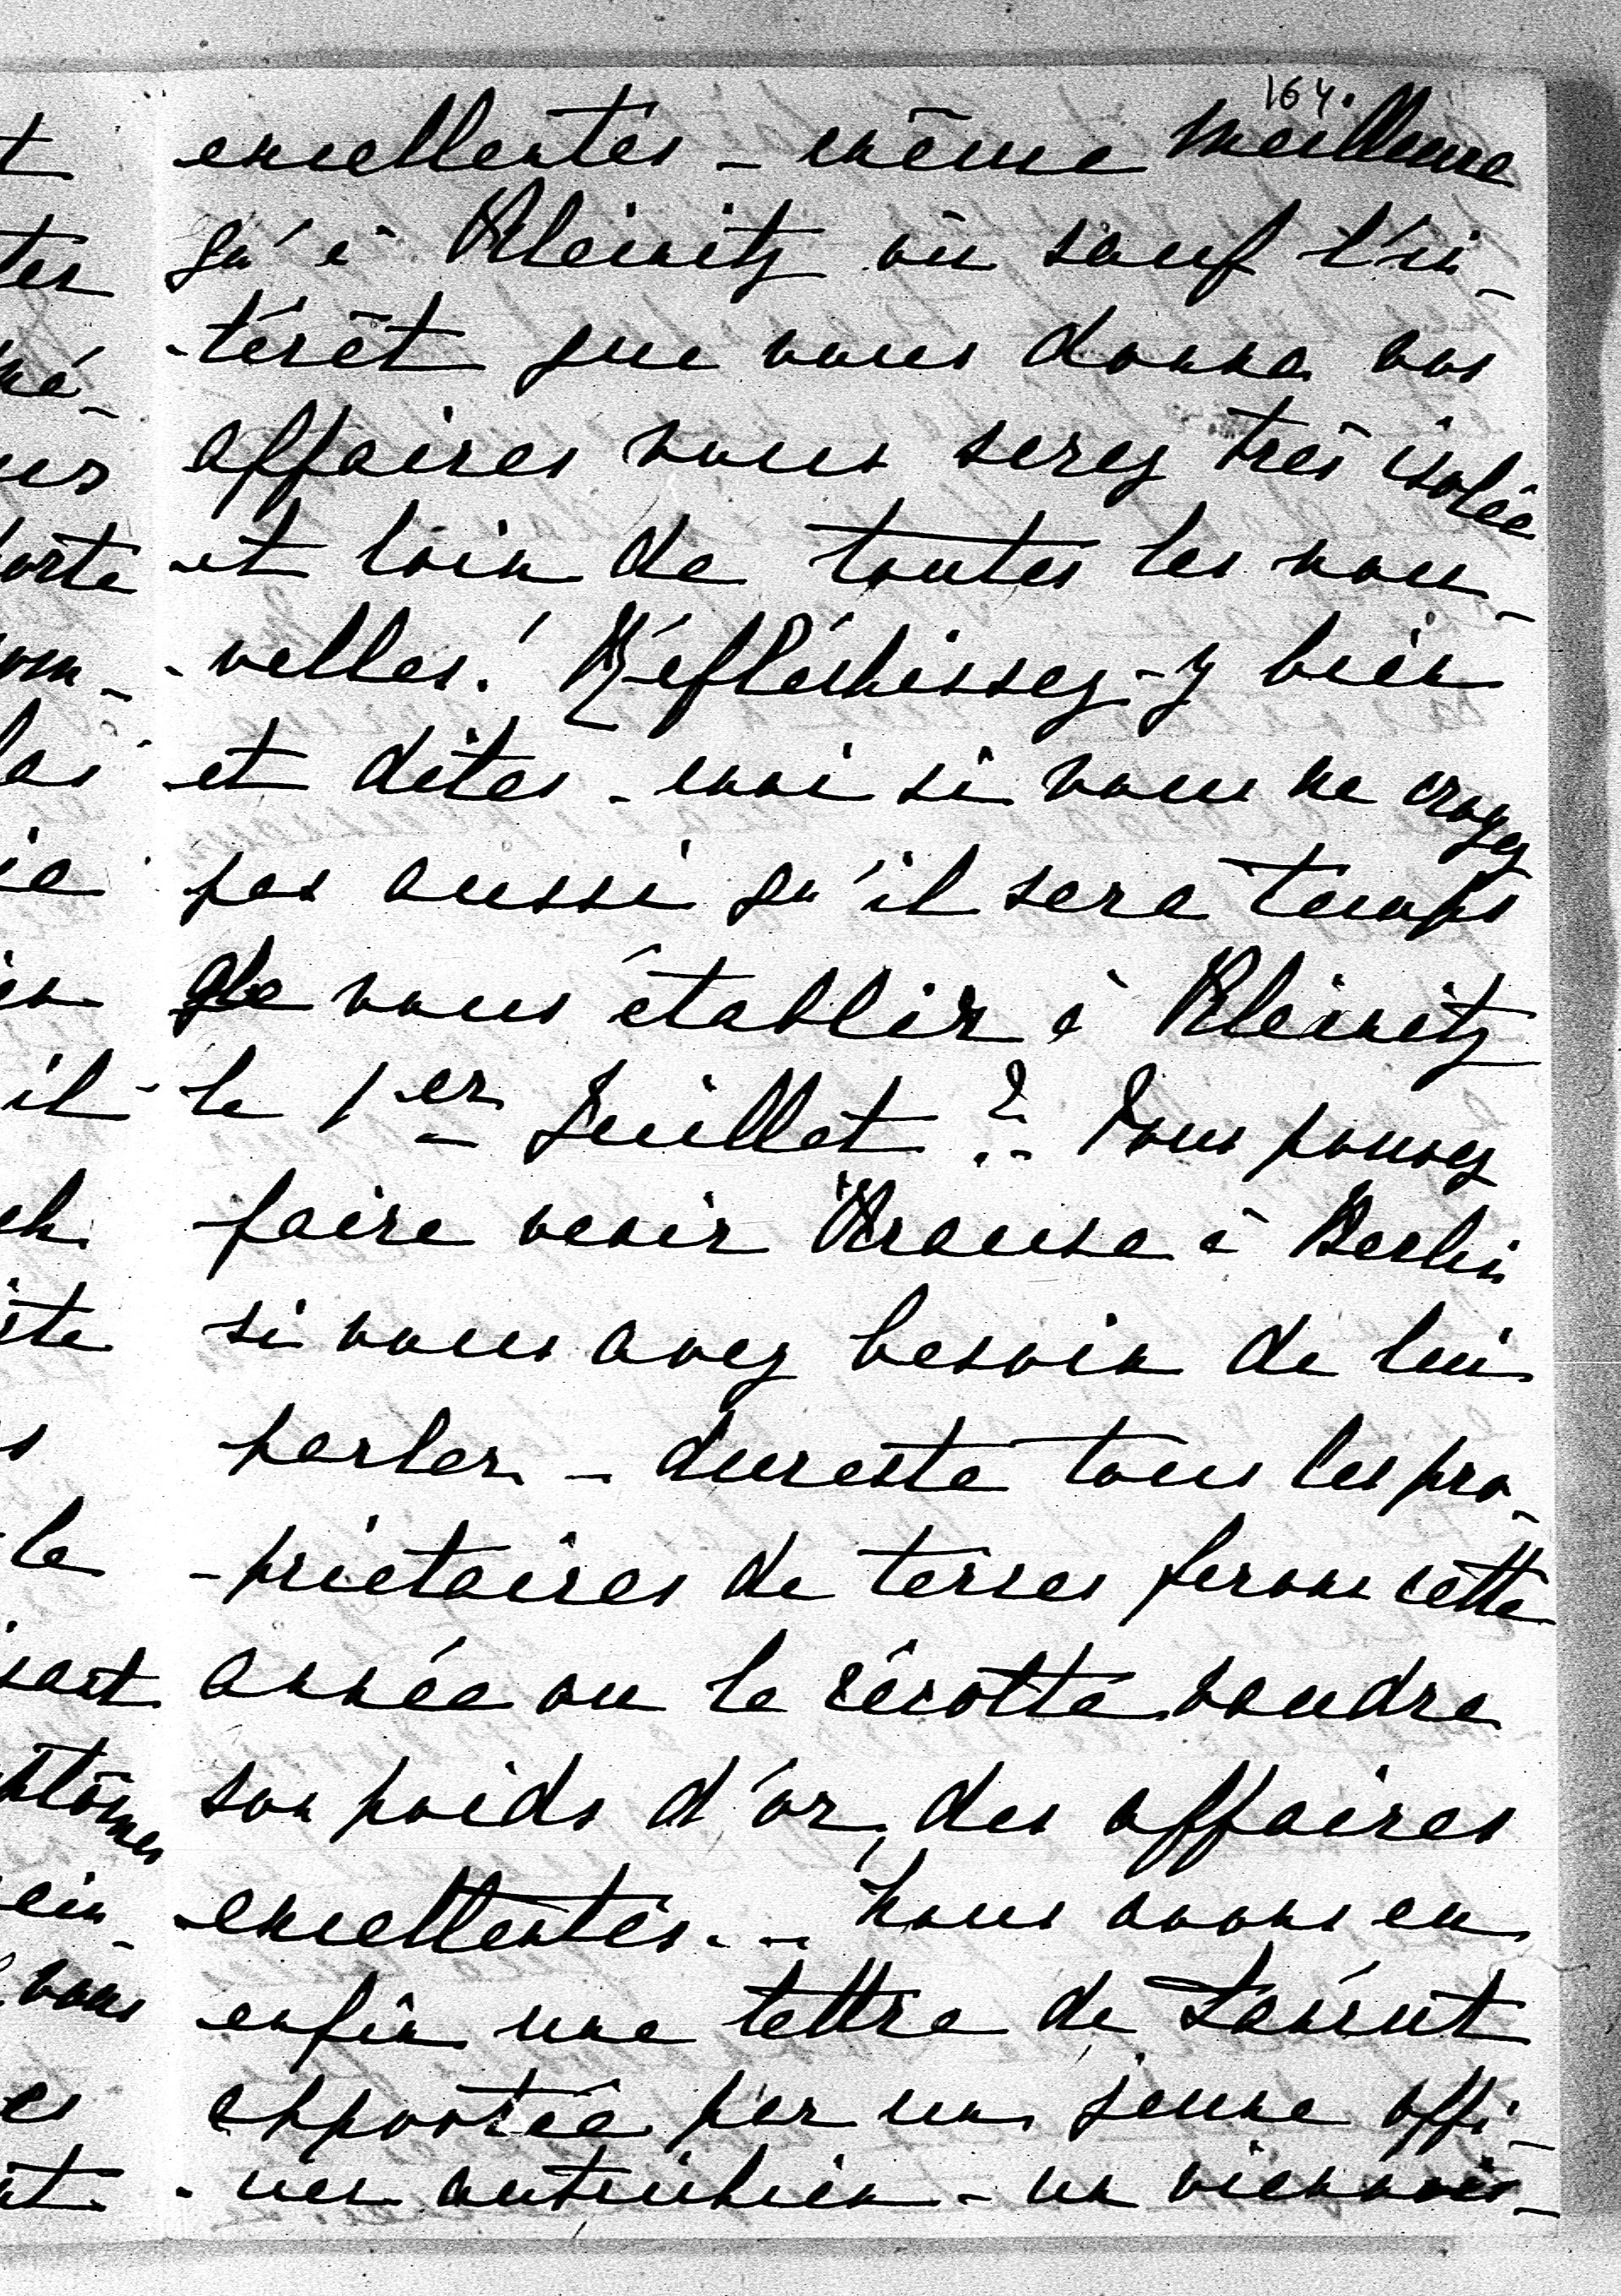 164.
excellentes - même meilleure
qu'à Kleinitz où sauf l'in-
-térêt que vous donne vos
affaires vous serez très isolée
et loin de toutes les nou-
-velles! Réfléchissez-y bien
et dites-moi si vous ne croyez
pas aussi qu'il sera temps
de vous établir à Kleinitz
le 1er Juillet? Vous pouvez
faire venir Krause à Berlin
si vous avez besoin de lui
parler - dureste tous les pro-
-priétaires de terres ferons cette
année ou la récotte vaudra
son poids d'or, des affaires
excellentes. - Nous avons eu
enfin une lettre de
apportée par un jeune offi-
-cier autrichien - un viennois -